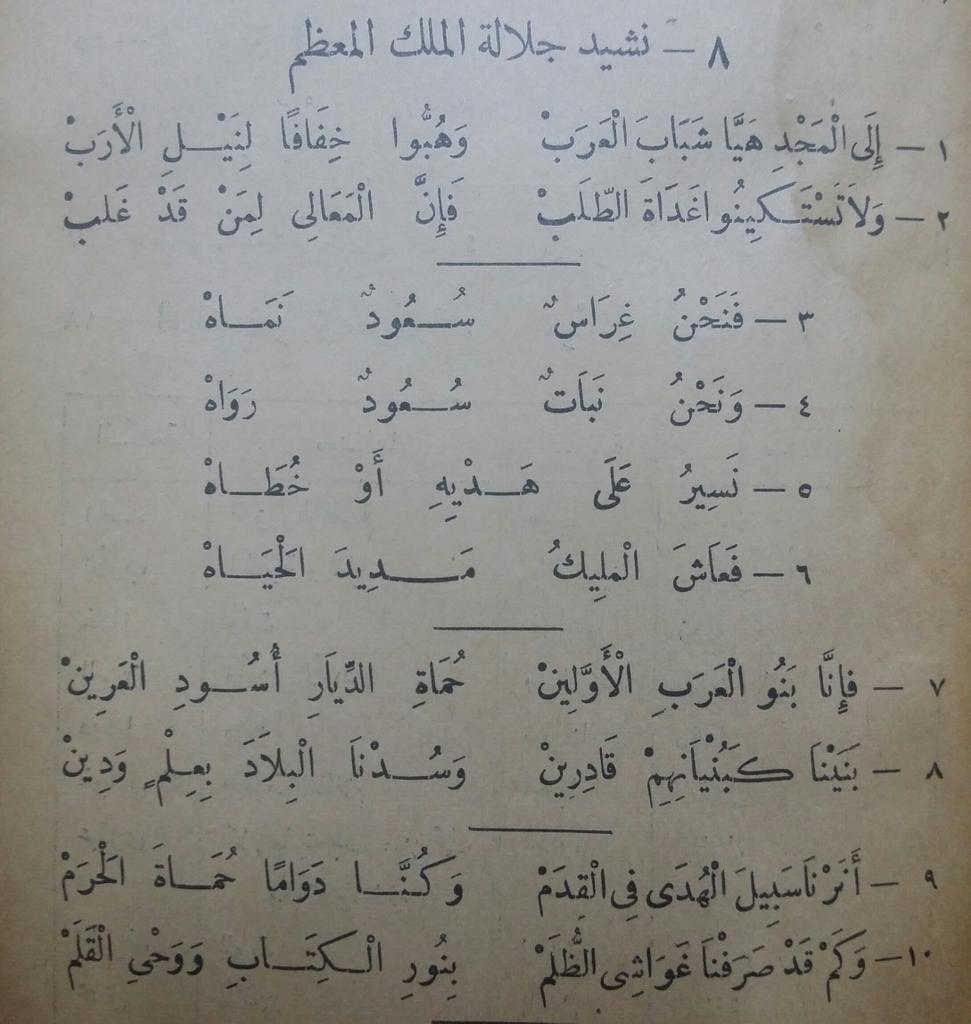 ٨ – نشيد جلالة الملك المعظم
١ – إِلَى الْمَجْدِ هَيَّا شَبَابَ الْعَرَبْ وَهُبُّوا خِفَافًا لِنَيْلِ الْأَرَبْ
٢ – وَلاَ تَسْتَكِينُوا غَدَاةَ الطَّلَبْ فَإِنَّ الْمَعَالِى لِمَنْ قَدْ غَلَبْ
٣ – فَنَحْنُ غِرَاسٌ سُعُودٌ نَمَاهْ
٤ – وَنَحْنُ نَبَاتٌ سُعُودٌ رَوَاهْ
٥ – نَسِيرُ عَلَى هَدْيِهِ أَوْ خُطَاهْ
٦ – فَعَاشَ الْمَلِيكُ مَدِيدَ الْحَيَاهْ
٧ – فَإِنَّا بَنُو الْعَرَبِ الْأَوَّلِينْ حُمَاةِ الدِّيَارِ أُسُودِ الْعَرِينْ
٨ – بَنَيْنَا كَبُنْيَانِهِمْ قَادِرِينْ وَسُدْنَا الْبِلاَدَ بِعِلْمٍ وَدِينْ
٩ – أَنَرْنَا سَبِيلَ الْهُدَى فِى الْقِدَمْ وَكُنَّا دَوَامًا حُمَاةَ الْحَرَمْ
١٠ – وَكَمْ قَدْ صَرَفْنَا غَوَاشِى الظُّلَمْ بِنُورِ الْكِتَابِ وَوَحْىِ الْقَلَمْ